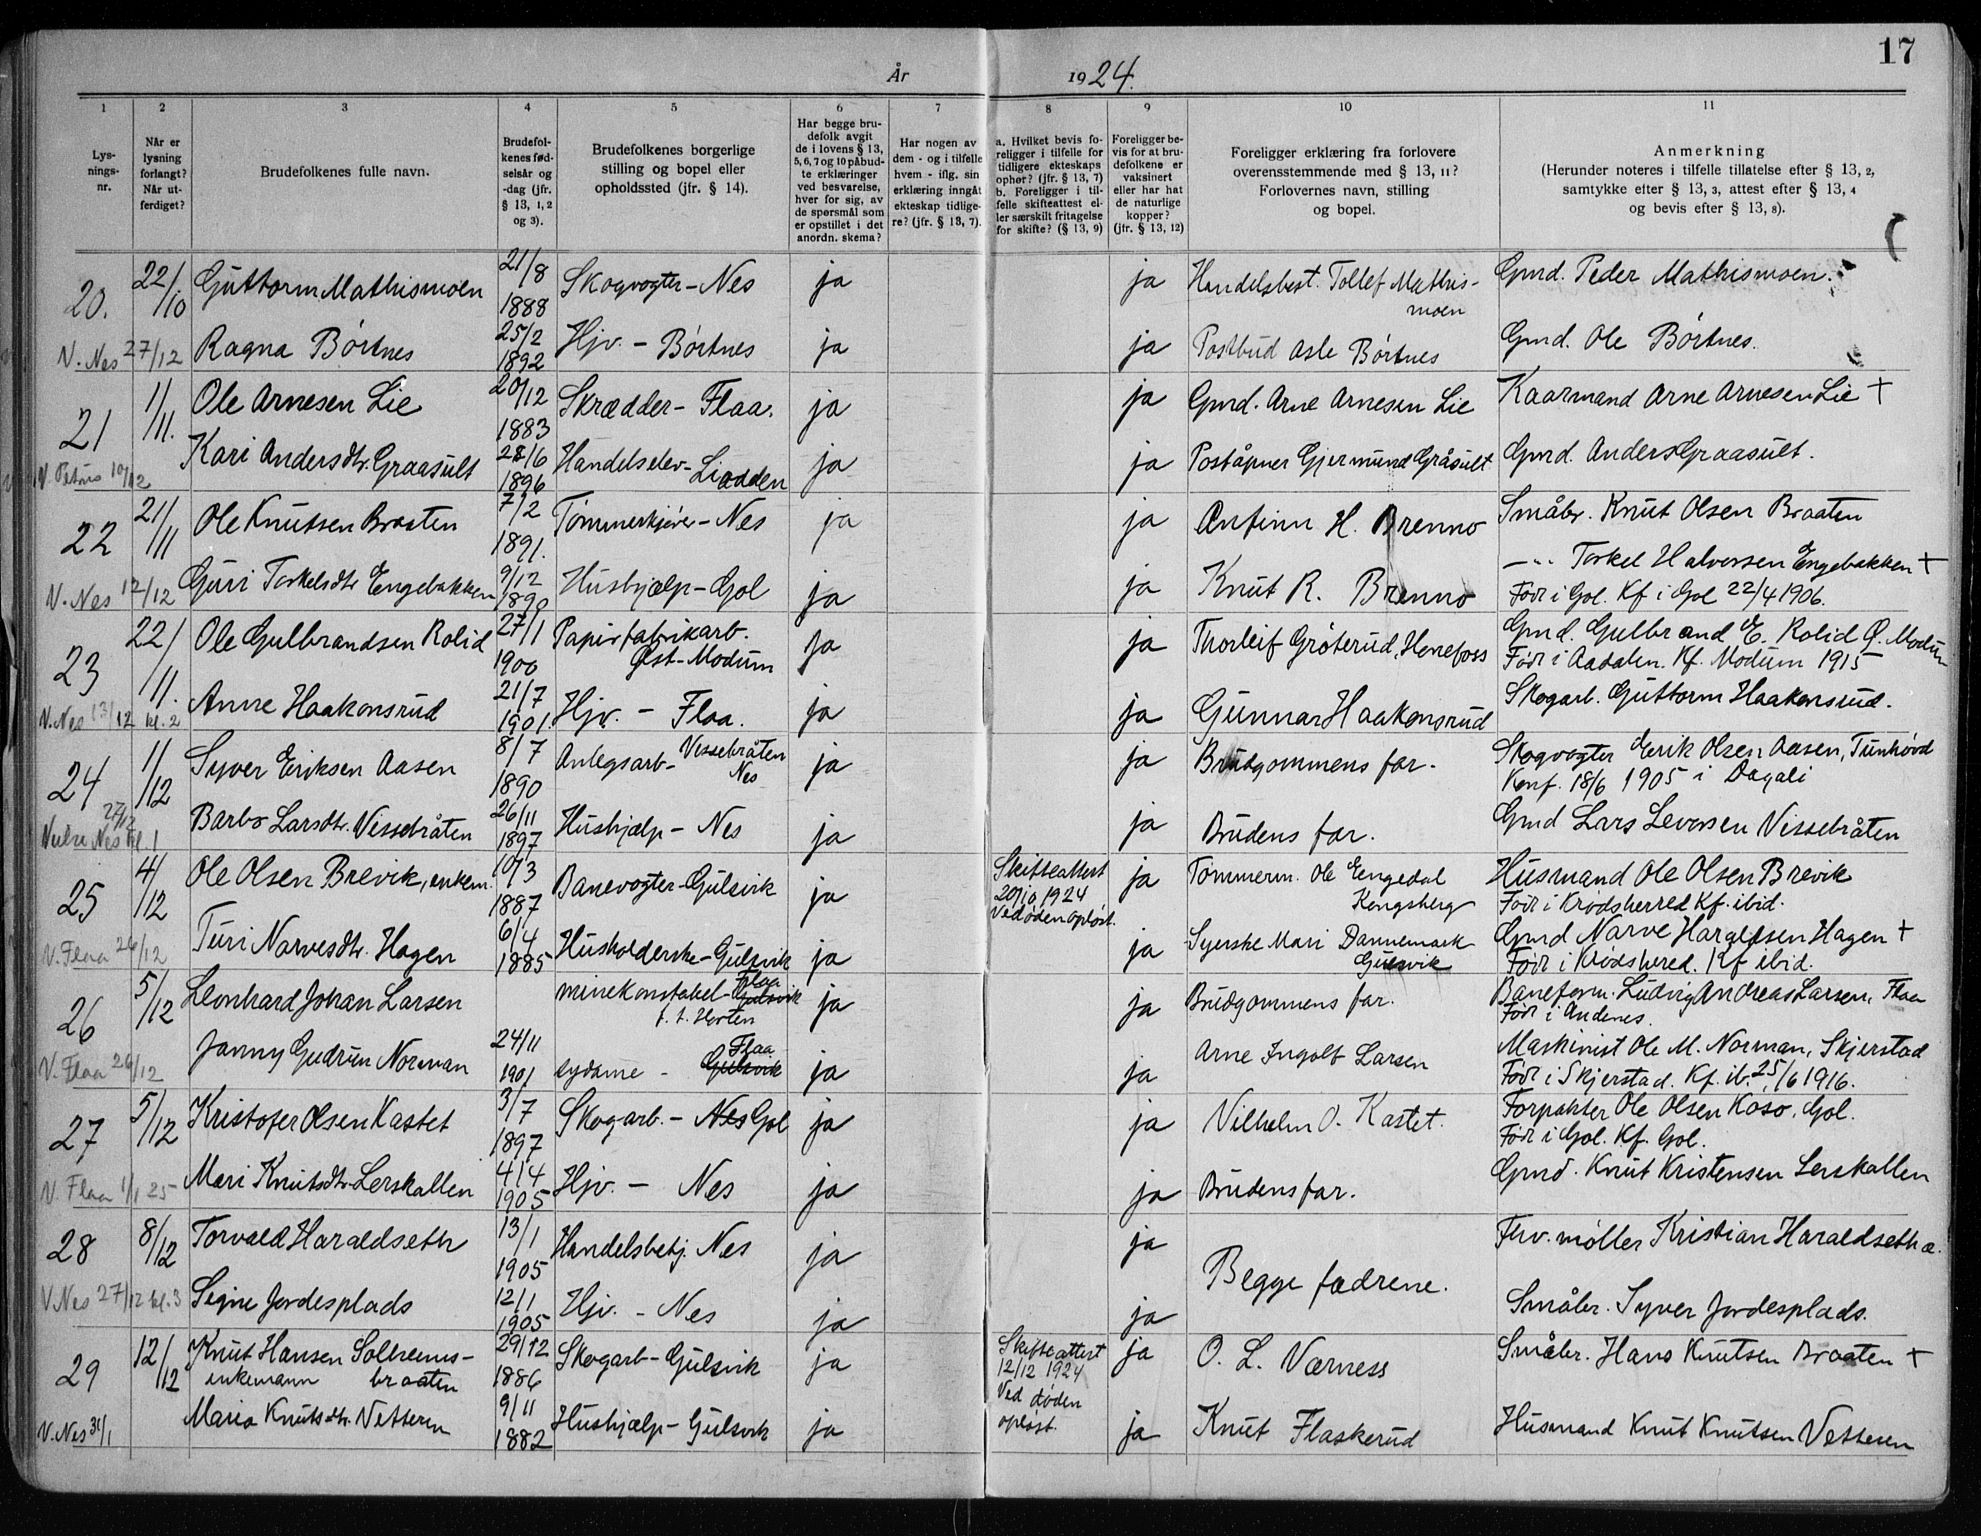 17
År 1924.
1 2 3 4 5 6 7 8 9 10 11
Lysnings-nr.
Når er lysning forlangt? Når utferdiget?
Brudefolkenes fulle navn.
Brudefolkenes fødselsår og -dag (jfr. § 13, 1, 2 og 3).
Brudefolkenes borgerlige stilling og bopel eller opholdssted (jfr. § 14).
Har begge brudefolk avgit de i lovens § 13, 5, 6, 7 og 10 påbudte erklæringer ved besvarelse, hver for sig, av de spørsmål som er opstillet i det anordn. skema?
Har nogen av dem - og i tilfelle hvem - iflg. sin erklæring inngåt ekteskap tidligere? (jfr. § 13, 7).
a. Hvilket bevis foreligger i tilfelle for tidligere ekteskaps ophør? (jfr. § 13, 7)
b. Foreligger i tilfelle skifteattest eller særskilt fritagelse for skifte? (§ 13, 9)
Foreligger bevis for at brudefolkene er vaksinert eller har hat de naturlige kopper? (jfr. § 13, 12)
Foreligger erklæring fra forlovere overensstemmende med § 13, 11? Forlovernes navn, stilling og bopel.
Anmerkning (Herunder noteres i tilfelle tillatelse efter § 13, 2, samtykke efter § 13, 3, attest efter § 13, 4 og bevis efter § 13, 8).
20. 22/10 Guttorm Mathismoen 21/8 1888 Skogvogter - Nes ja ja Handelsbest. Tollef Mathismoen Gmd. Peder Mathismoen.
V. Nes 27/12 Ragna Börtnes 25/2 1892 Hjv. - Börtnes ja ja Postbud Asle Börtnes Gmd. Ole Börtnes.
21 1/11. Ole Arnesen Lie 20/12 1883 Skrædder - Flaa. ja ja Gmd. Arne Arnesen Lie Kaarmand Arne Arnesen Lie +
10/12 Kari Andersdtr. Graasult 28/6 1896 Handelselev - Liodden ja ja Poståpner Gjermund Gråsult Gmd. Anders Graasult.
22 21/11 Ole Knutsen Braaten 7/2 1891. Tømmerkjører - Nes ja ja Anfinn H. Brenno Småbr. Knut Olsen Braaten
V. Nes 12/12 Guri Torkelsdtr Engebakken 9/12 1890 Hushjælp - Gol ja ja Knut R. Brenno —"— Torkel Halvorsen Engebakken +
Född i Gol. Kf i Gol 22/4 1906.
23 22/11. Ole Gulbrandsen Rolid 27/1 1900 Papirfabrikarb. Øst-Modum ja ja Thorleif Gröterud, Hønefoss Gmd. Gulbrand E. Rolid Ø. Modum
Född i Aadalen. Kf. Modum 1915
V. Nes 13/12 kl. 2 Anne Haakonsrud 21/7 1901. Hjv. - Flaa. ja ja Gunnar Haakonsrud Skogarb. Guttorm Haakonsrud.
24 1/12 Syver Eriksen Aasen 8/7 1890 Anlegsarb - Vissebråten Nes ja ja Brudgommens far. Skogvogter Erik Olsen Aasen, Tunhövd
Konf. 18/6 1905 i Dagali
27/12 Nes kl. 1 Barbo Larsdtr. Vissebråten 26/11 1897 Hushjælp - Nes ja ja Brudens far. Gmd Lars Levorsen Vissebråten
25 4/12 Ole Olsen Brevik, enkem. 10/3 1887 Banevogter - Gulsvik ja Skifteattest 20/10 1924 Ved döden oplöst. ja Tømmerm. Ole Engedal Kongsberg Husmand Ole Olsen Brevik
Född i Krödsherred Kf. ibid.
V. Flaa 26/12 Turi Narvesdtr. Hagen 6/4 1885 Husholderske - Gulsvik ja ja Syerske Mari Dannemark Gulsvik Gmd Narve Haraldsen Hagen +
Född i Krödsherred. Kf ibid.
26 5/12 Leonhard Johan Larsen Minekonstabel - Gulsvik Flaa f. t. Horten ja ja Brudgommens far. Baneform. Ludvig Andreas Larsen, Flaa
Född i Andenes.
V. Flaa 26/12 Janny Gudrun Norman 24/11 1901 sydame - Gulsvik Flaa ja ja Arne Ingolf Larsen Maskinist Ole M. Norman, Skjerstad
Född i Skjerstad. Kf. ib. 25/6 1916.
27 5/12 Kristofer Olsen Kastet 3/7 1897 Skogarb. - Nes Gol ja ja Vilhelm O. Kastet. Forpakter Ole Olsen Koso, Gol.
Född i Gol. Kf. Gol.
V. Flaa 1/1 25 Mari Knutsdtr Lerskallen 4/4 1905 Hjv. - Nes ja ja Brudens far. Gmd. Knut Kristensen Lerskallen
28 8/12 Torvald Haraldseth 13/1 1905 Handelsbetj. Nes ja ja Begge fædrene. Fhv. møller Kristian Haraldseth
V. Nes 27/12 kl. 3 Signe Jordesplads 12/1 1905 Hjv. - Nes ja ja Småbr. Syver Jordesplads.
29 12/12 Knut Hansen Solheimsbraaten enkemann 29/12 1886 Skogarb - Gulsvik ja Skifteattest 12/12 1924 Ved döden oplöst. ja O. L. Værness Småbr. Hans Knutsen Braaten +
V. Nes 31/1 Maria Knutsdtr. Vetteren 9/11 1882 Hushjælp - Gulsvik ja ja Knut Flaskerud Husmand Knut Knutsen Vetteren